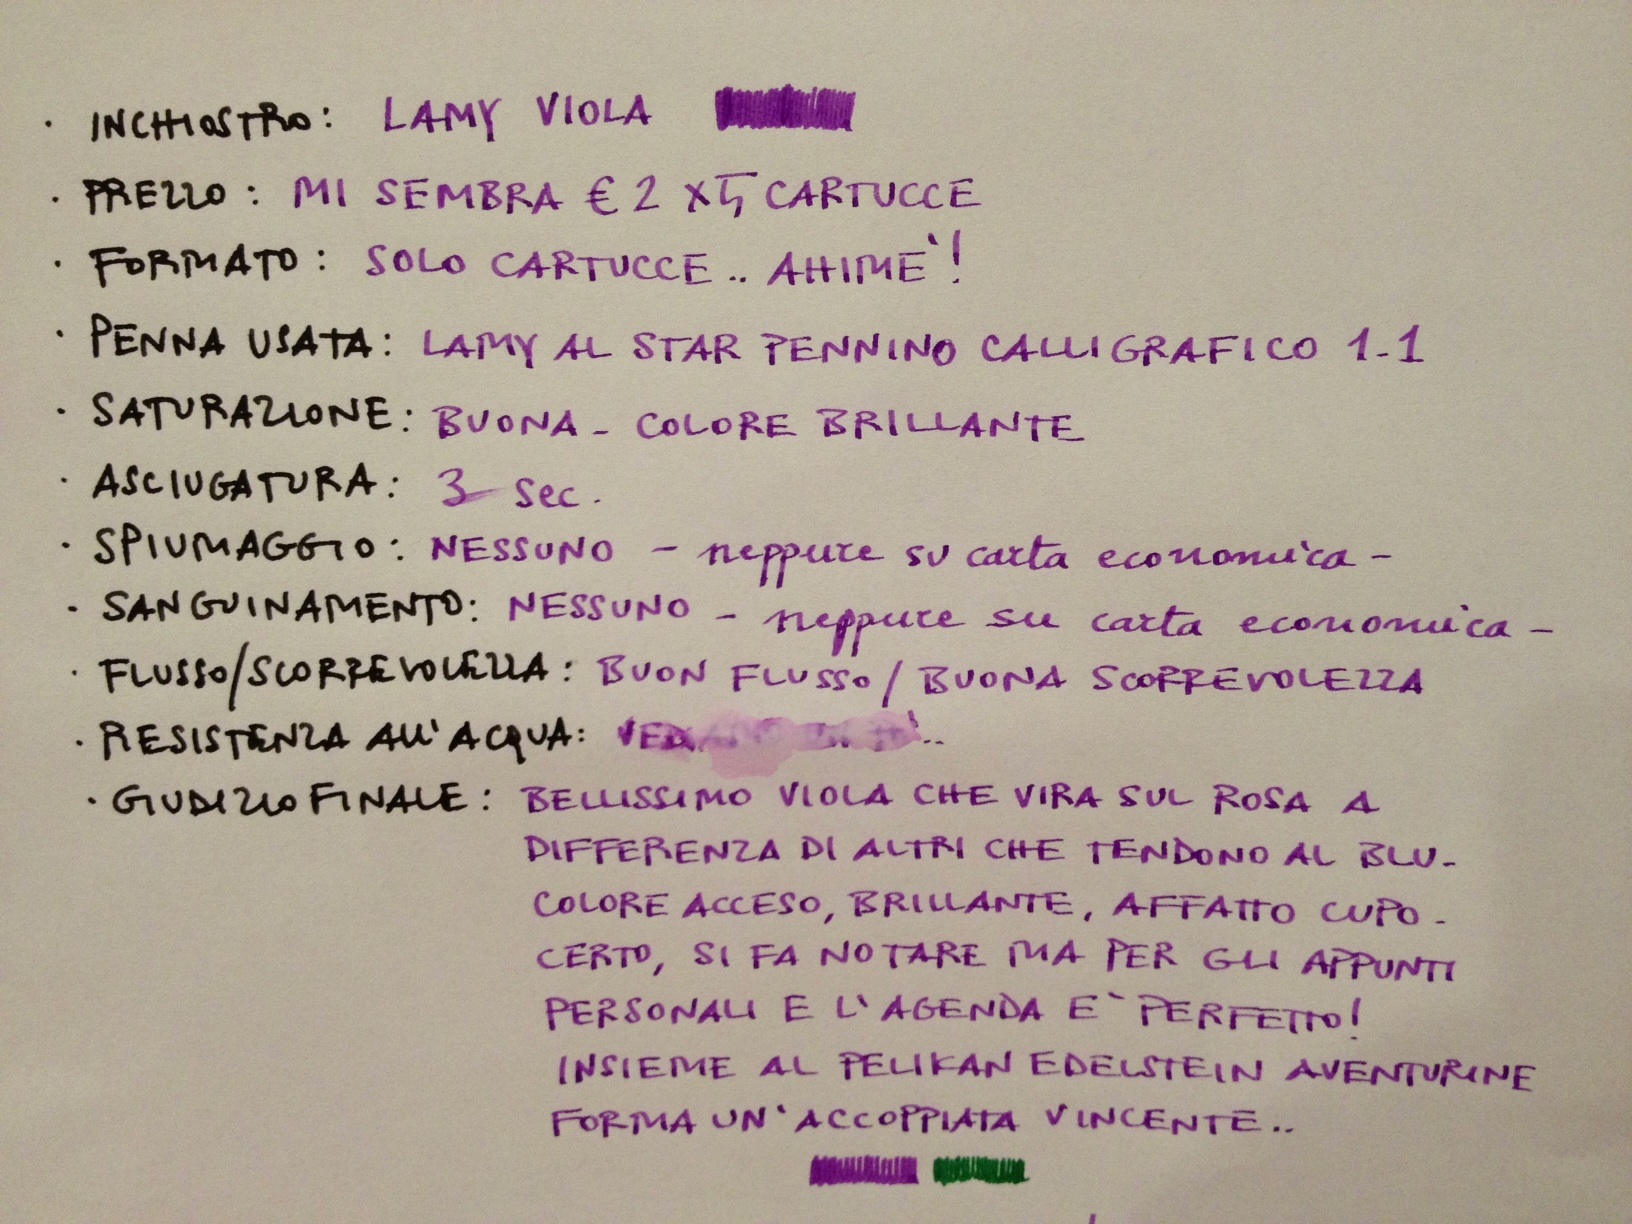 · INCHIOSTRO: LAMY VIOLA
· PREZZO: MI SEMBRA € 2 X 5 CARTUCCE
· FORMATO: SOLO CARTUCCE.. AHIME`!
· PENNA USATA: LAMY AL STAR PENNINO CALLIGRAFICO 1.1
· SATURAZIONE: BUONA - COLORE BRILLANTE
· ASCIUGATURA: 3 sec.
· SPIUMAGGIO: NESSUNO - neppure su carta economica -
· SANGUINAMENTO: NESSUNO - neppure su carta economica -
· FLUSSO/SCORREVOLEZZA: BUON FLUSSO/BUONA SCORREVOLEZZA
· RESISTENZA ALL'ACQUA:
· GIUDIZIO FINALE: BELLISSIMO VIOLA CHE VIRA SUL ROSA A
DIFFERENZA DI ALTRI CHE TENDONO AL BLU.
COLORE ACCESO, BRILLANTE, AFFATTO CUPO.
CERTO, SI FA NOTARE MA PER GLI APPUNTI
PERSONALI E L'AGENDA E` PERFETTO!
INSIEME AL PELIKAN EDELSTEIN AVENTURINE
FORMA UN'ACCOPPIATA VINCENTE..